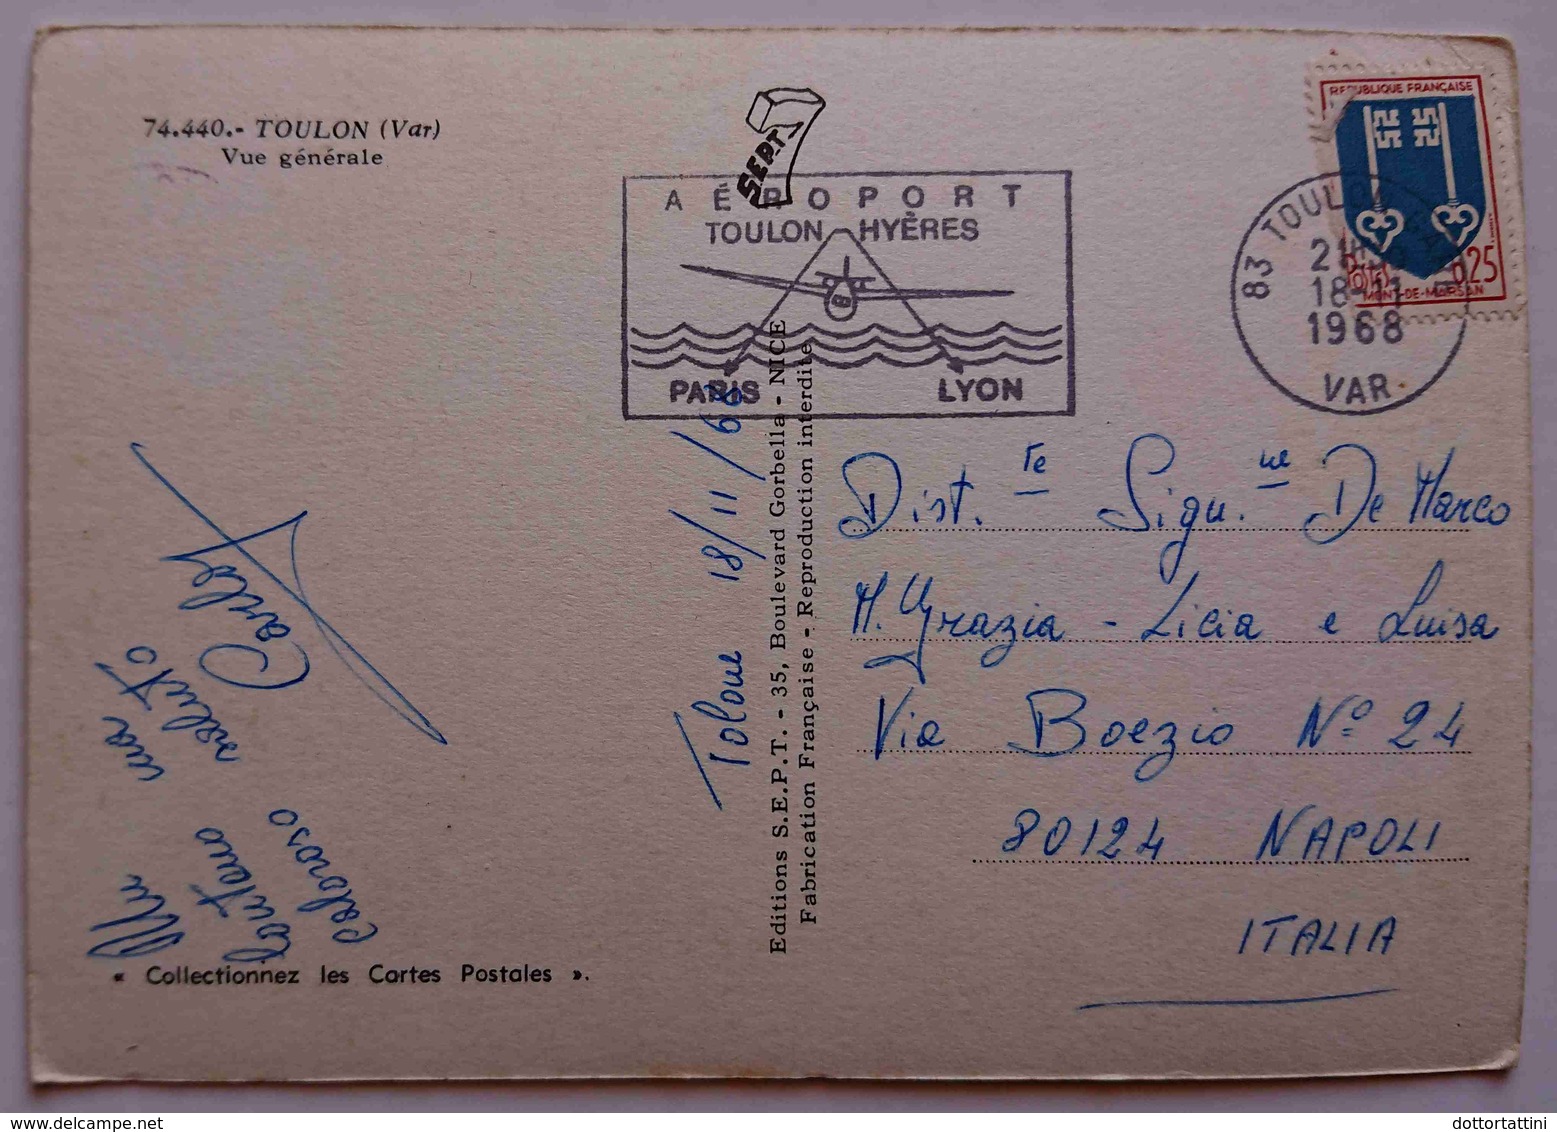 74.440.- TOULON (Var)
Vue générale
SEPT
AÉROPORT
TOULON HYÈRES
PARIS LYON
REPUBLIQUE FRANÇAISE
Postes 0,25
MONT-DE-MARSAN
83 TOULON
18-11
1968
VAR
Tolone 18/11/68
Editions S.E.P.T. - 35, Boulevard Gorbella - NICE
Fabrication Française - Reproduction interdite
Un
lontano
caloroso
saluto
Carlo
Dist.te Sigu.ne De Marco
M. Grazia - Licia e Luisa
Via Boezio N° 24
80124 NAPOLI
ITALIA
« Collectionnez les Cartes Postales ».
dottortattini